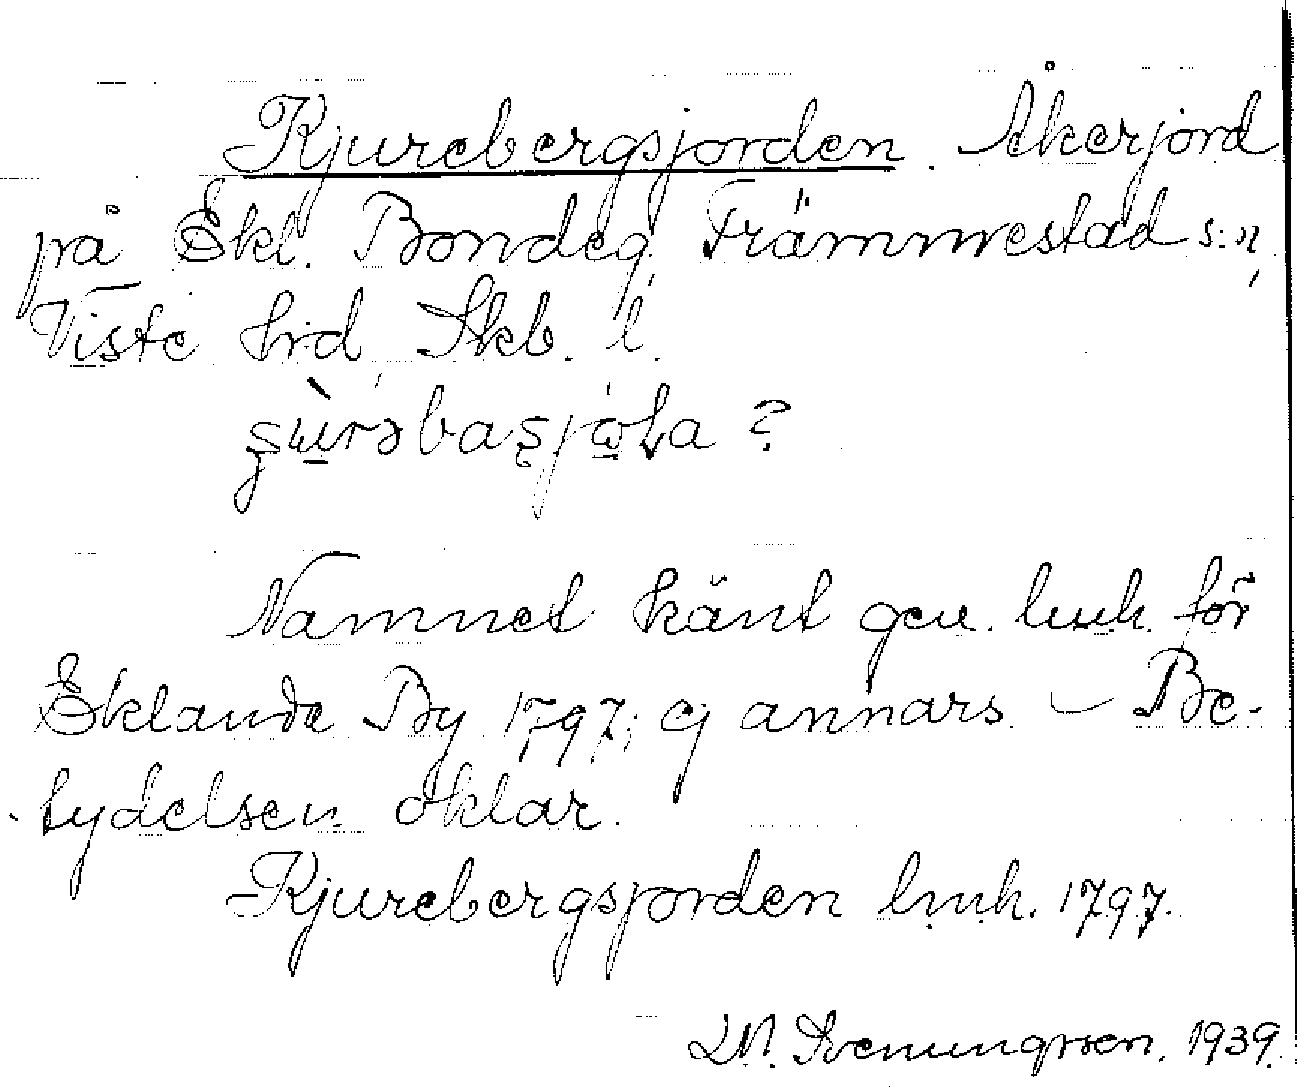 Kjurebergsjorden. Åkerjord
på Ekl. Bondeg. Främmestad s:n,
Viste hrd, Skb. l.
Namnet känt gen. lmh. för
Eklanda By 1797; ej annars. – Be-
tydelsen oklar.
Kjurebergsjorden lmh. 1797.
Svenungsson. 1939.